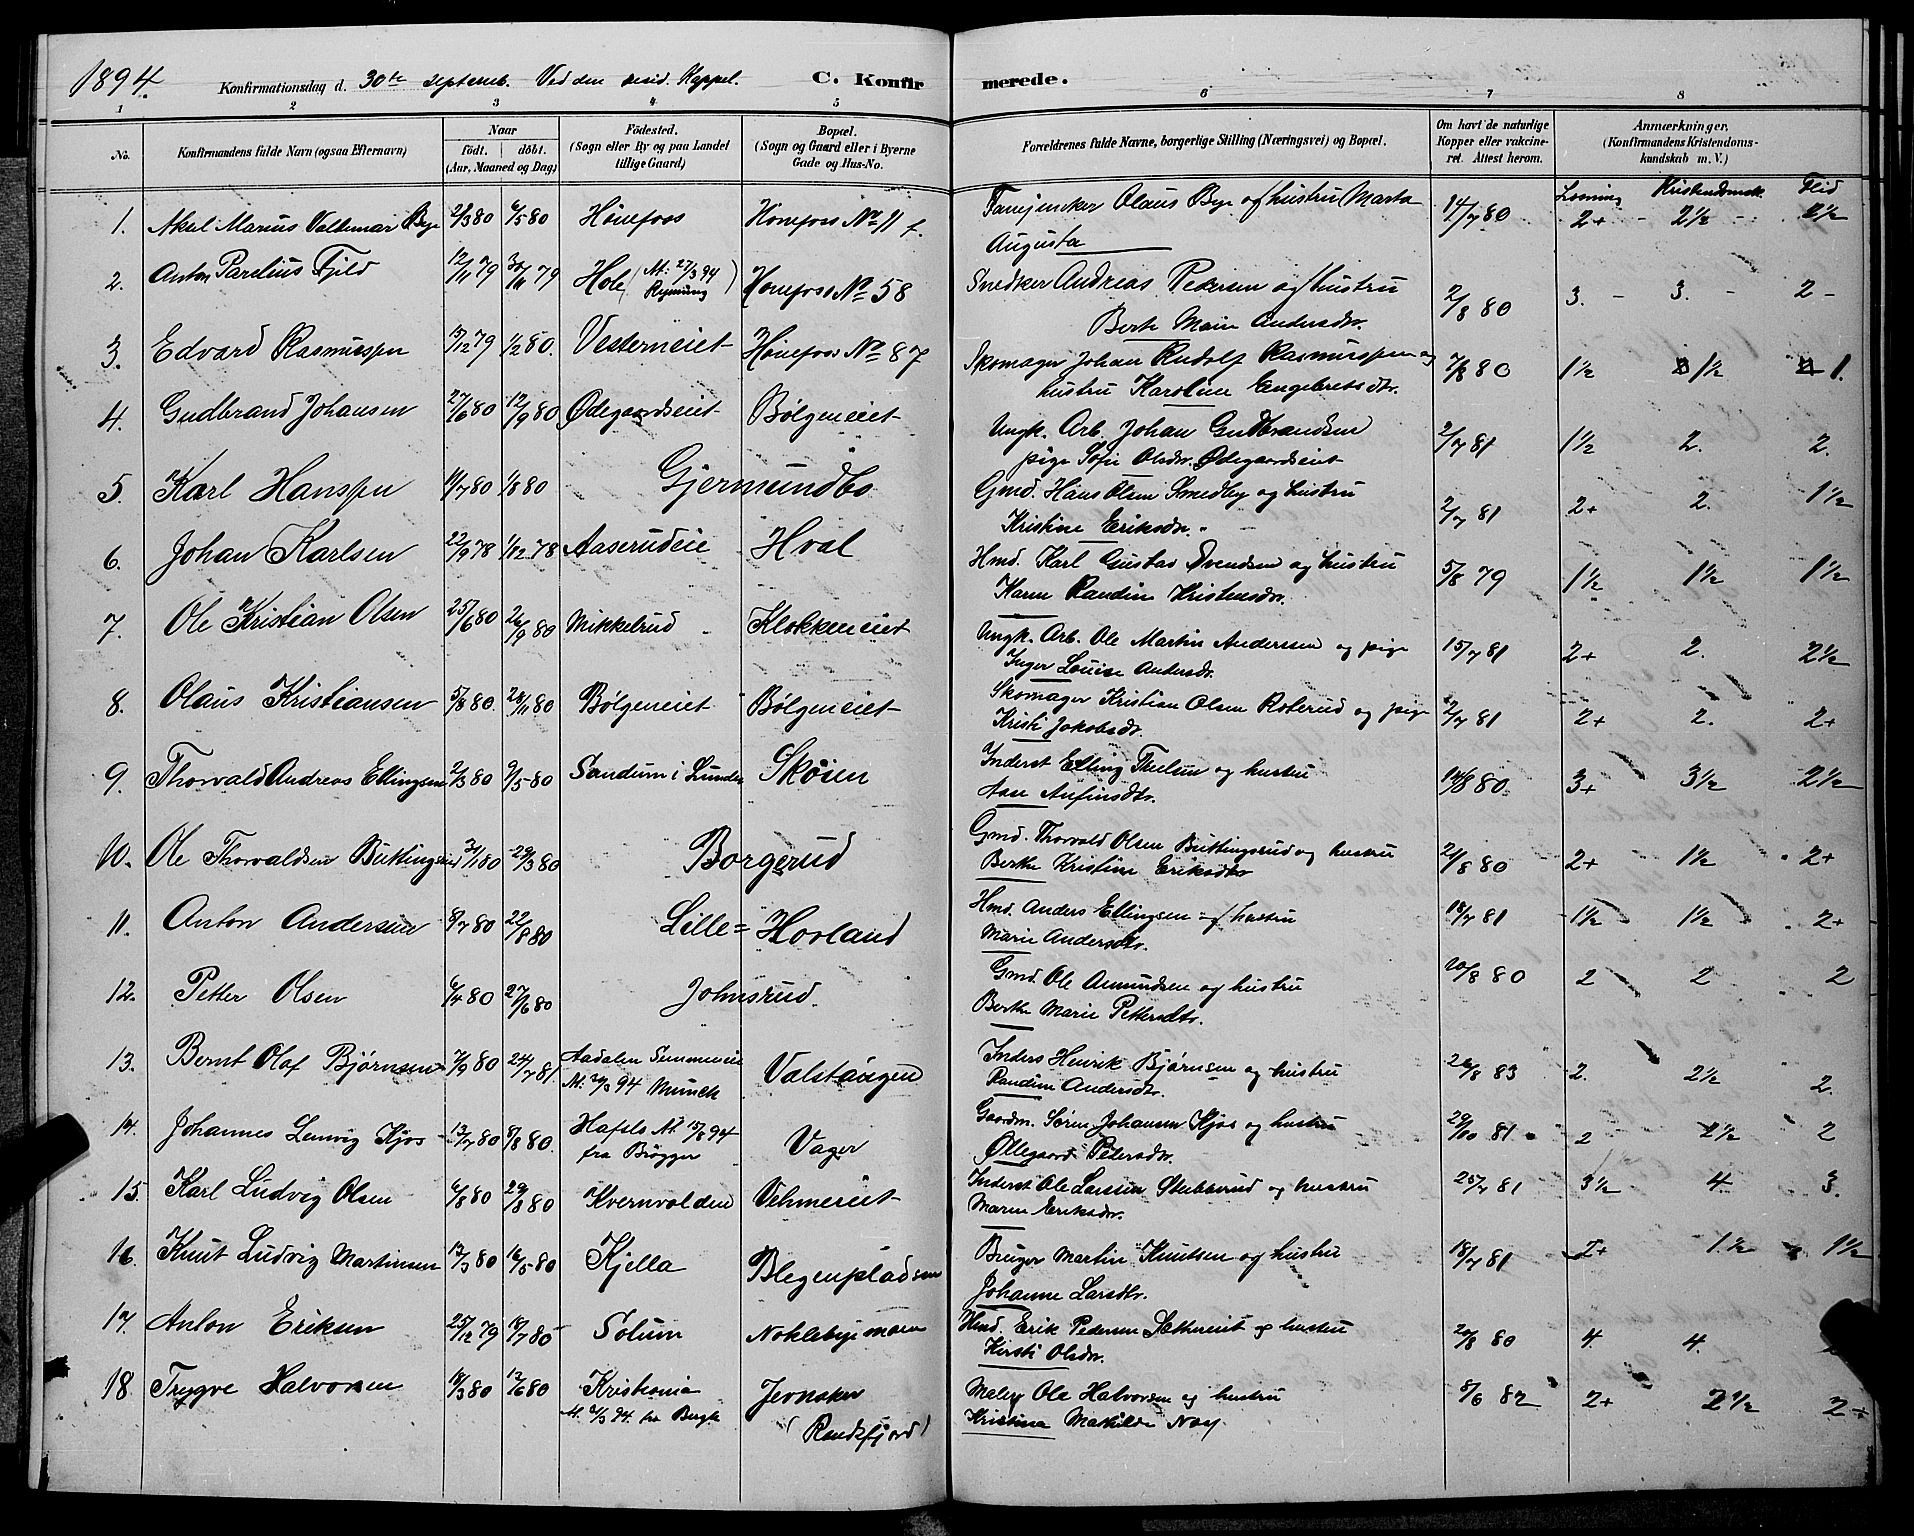 1894.
Konfirmationsdag d. 30te septemb. Ved den resid. Kappel. C. Konfirmerede.
1 2 3 4 5 6 7 8
No.
Konfirmandens fulde Navn (ogsaa Efternavn)
Naar
födt. döbt.
(Aar, Maaned og Dag)
Födested.
(Sogn eller By og paa Landet
tillige Gaard)
Bopæl.
(Sogn og Gaard eller i Byerne
Gade og Hus-No.
Forældrenes fulde Navne, borgerlige Stilling (Næringsvei) og Bopæl.
Om havt de naturlige
Kopper eller vakcine-
ret. Attest herom.
Anmærkninger.
(Konfirmandens Kristendoms-
kundskab m. V.)
Læsning Kristendomsk Flid
1. Aksel Marius Valdemar Bye 2/3 80 6/5 80 Hönefoss Hönefoss No 11 f. Olaus Bye og hustru Marta
Augusta 14/7 80 2+ 2½ 2½
2. Anton Parelius Fjeld 12/11 79 30/11 79 Hole (At: 27/3 94 Hönefoss No 58 Snedker Andreas Pedersen og hustru
Berte Marie Andersdtr. 2/8 80 3. - 3. - 2 -
3. Edvard Rasmussen 15/12 79 1/2 80. Vesterneiet Hönefoss No 87 Skomager Johan Rudolf Rasmussen og
hustru Karoline Engebretsdtr. 7/8 80 1½ 1½ 1.
4. Gudbrand Johansen 27/6 80 12/9 80 Ødegaardseiet Bölgeneiet Ungk. Arb. Johan Gudbrandsen
pige Sofie Olsdr. Ødegaardseiet 2/7 81 1½ 2. 2.
5. Karl Hanssen 11/7 80 1/8 80 Gjermundbo Gmd. Hans Olsen Smedby og hustru
Kristine Eriksdr. 2/7 81 2+ 2. 1½
6. Johan Karlsen 22/9 78 1/12 78 Aaserudeie Hval Hmd. Karl Gustav Svendsen og hustru
Karen Randine Kristensdr. 5/8 79 1½ 1½ 1½
7. Ole Kristian Olsen 25/6 80 26/9 80 Mikkelrud Klokkereiet Ungk. Arb. Ole Martin Andersen og pige
Inger Louise Andersdr. 15/7 81 2+ 2. 2½
8. Olaus Kristiansen 5/8 80. 28/11 80 Bölgeneiet Bölgeneiet Skomager Kristian Olsen Roterud og pige
Kristi Jakobsdr. 2/7 81 2+ 2. 2+
9. Thorvald Andreas Ellingsen 2/3 80 9/5 80 Sandum i Lunder Sköien Inderst Elling og hustru
Aase Anfinsdtr. 14/8 80 3+ 3½ 2½
10. Ole Thorvaldsen Buttingsrud 31/1 80 29/3 80 Borgerud Gmd. Thorvald Olsen Buttingsrud og hustru
Berthe Kristine Eriksdtr 21/8 80 2+ 1½ 2+
11. Anton Andersen 8/7 80 22/8 80 Lille= Hovland Hmd. Anders Ellingsen og hustru
Marie Andersdtr. 18/7 81 1½ 1½ 2+
12. Petter Olsen 6/4 80 27/6 80 Johnsrud. Gmd. Ole Amundsen og hustru
Berthe Marie Pettersdtr. 20/8 80 2 2 2
13. Bernt Olaf Björnsen 7/9 80 24/7 81 Aadalen
At. 21/3 94 Munch Valstangen Inders Henrik Björnsen og hustru
Randine Andersdtr. 26/8 83 2. 2½ 2.
14. Johannes Lenvig Kjos 13/7 80 8/8 80. Hafslo At 15/8 94
fra Brögger Vager Gaardm. Sören Johansen Kjos og hustru
Øllegaard Petersdr. 29/10 81 2 2½ 2
15. Karl Ludvig Olsen 6/8 80 29/8 80 Kvernvolden Vehmeiet Inderst Ole Larssen Stubberud og hustru
Maren Eriksdr. 25/7 81 3½ 4. 3.
16. Knut Ludvig Martinsen 13/3 80 16/5 80 Kjella Blegenpladsen Bruger Martin Knutsen og hustru
Johanne Larsdtr. 18/7 81 2+ 1½ 1½
17. Anton Eriksen 25/12 79 18/7 80 Solum Noklebyemoen Hmd. Erik Pedersen Sæthereiet og hustru
Kirsti Olsdr. 20/8 80 4. 4.
18. Trygve Halvorsen 18/3 80 13/6 80 Kristiania
At. 2/3 94 fra Jevnaker
(Randsfjord) Maler Ole Halvorsen og hustru
Kristina Mathilde Næs 8/6 82 2+ 2½ 2+